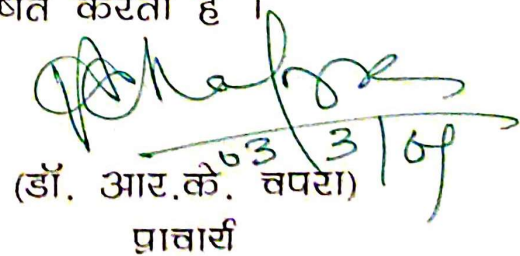 षित करता है ।
03/3/09
(डॉ. आर.के. चपरा)
प्राचार्य